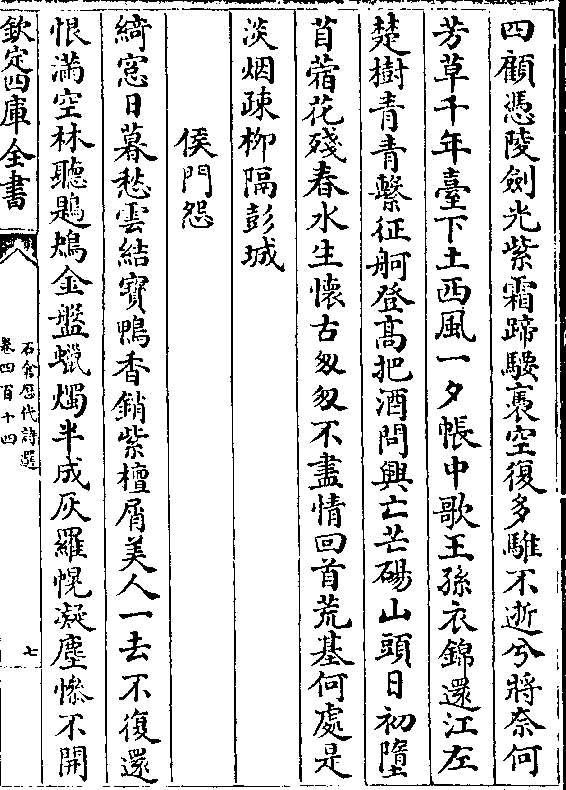 四顧憑陵劍光紫霜蹄騕褭空復多騅不逝兮將奈何
芳草千年臺下土西風一夕帳中歌王孫衣錦還江左
楚樹青青繫征舸登高把酒問興亡芒碭山頭日初墮
苜蓿花殘春水生懷古匆匆不盡情回首荒基何處是
淡烟疎栁隔彭城
侯門怨
綺窓日暮愁雲結寳鴨香銷紫檀屑美人一去不復還
恨滿空林聽鶗鴂金盤蠟燭半成灰羅幌凝塵慘不開
欽定四庫全書
石倉歴代詩選
卷四百十四
七